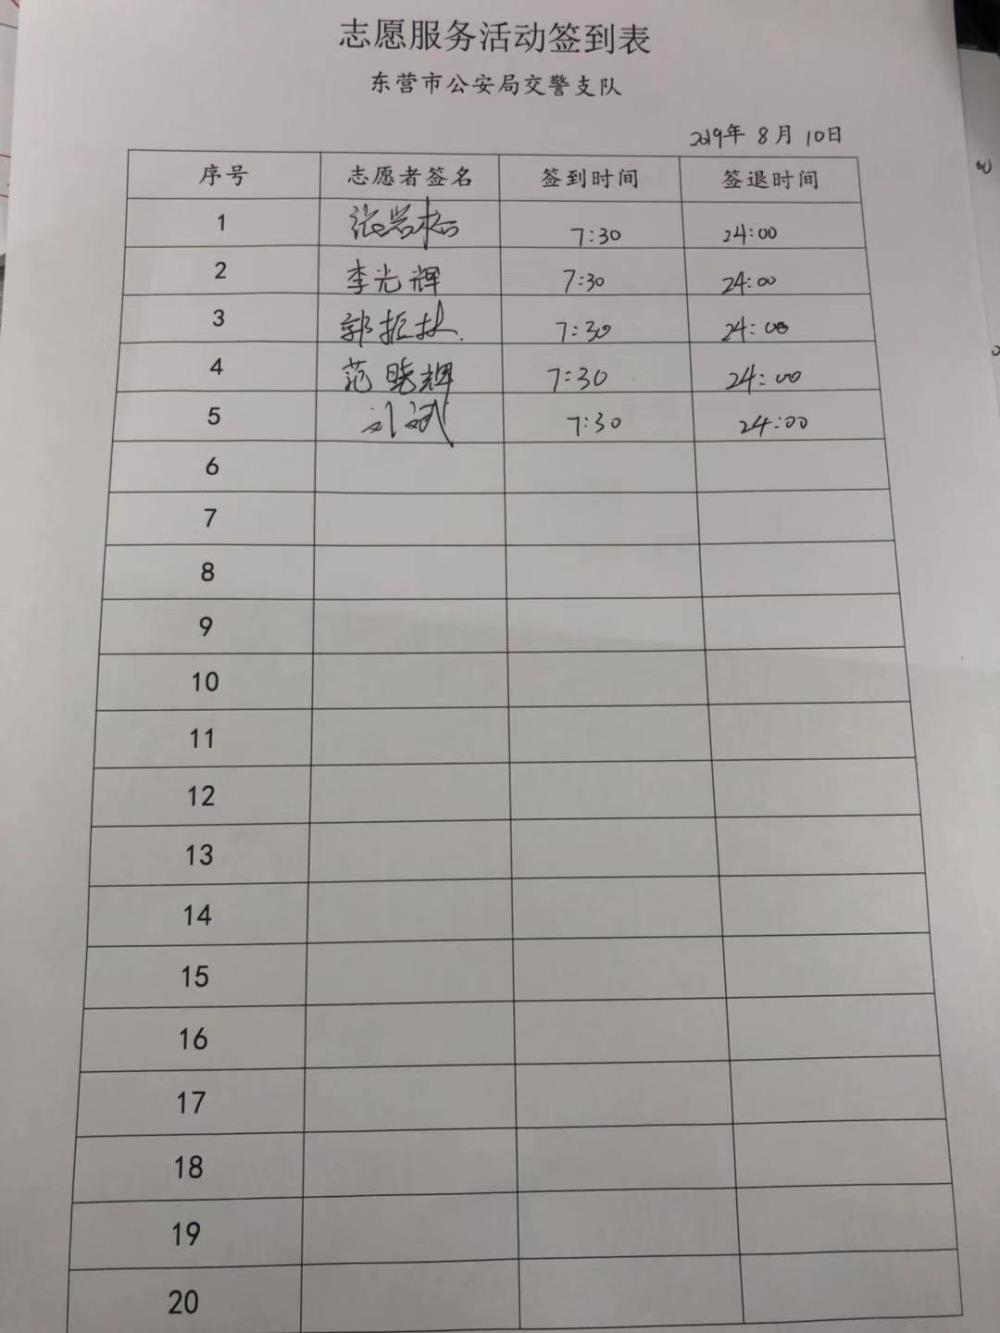 志愿服务活动签到表
东营市公安局交警支队
2019年 8月 10日
序号 志愿者签名 签到时间 签退时间
1 张岩松 7:30 24:00
2 李光辉 7:30 24:00
3 郭振林 7:30 24:00
4 范晓辉 7:30 24:00
5 刘斌 7:30 24:00
6
7
8
9
10
11
12
13
14
15
16
17
18
19
20